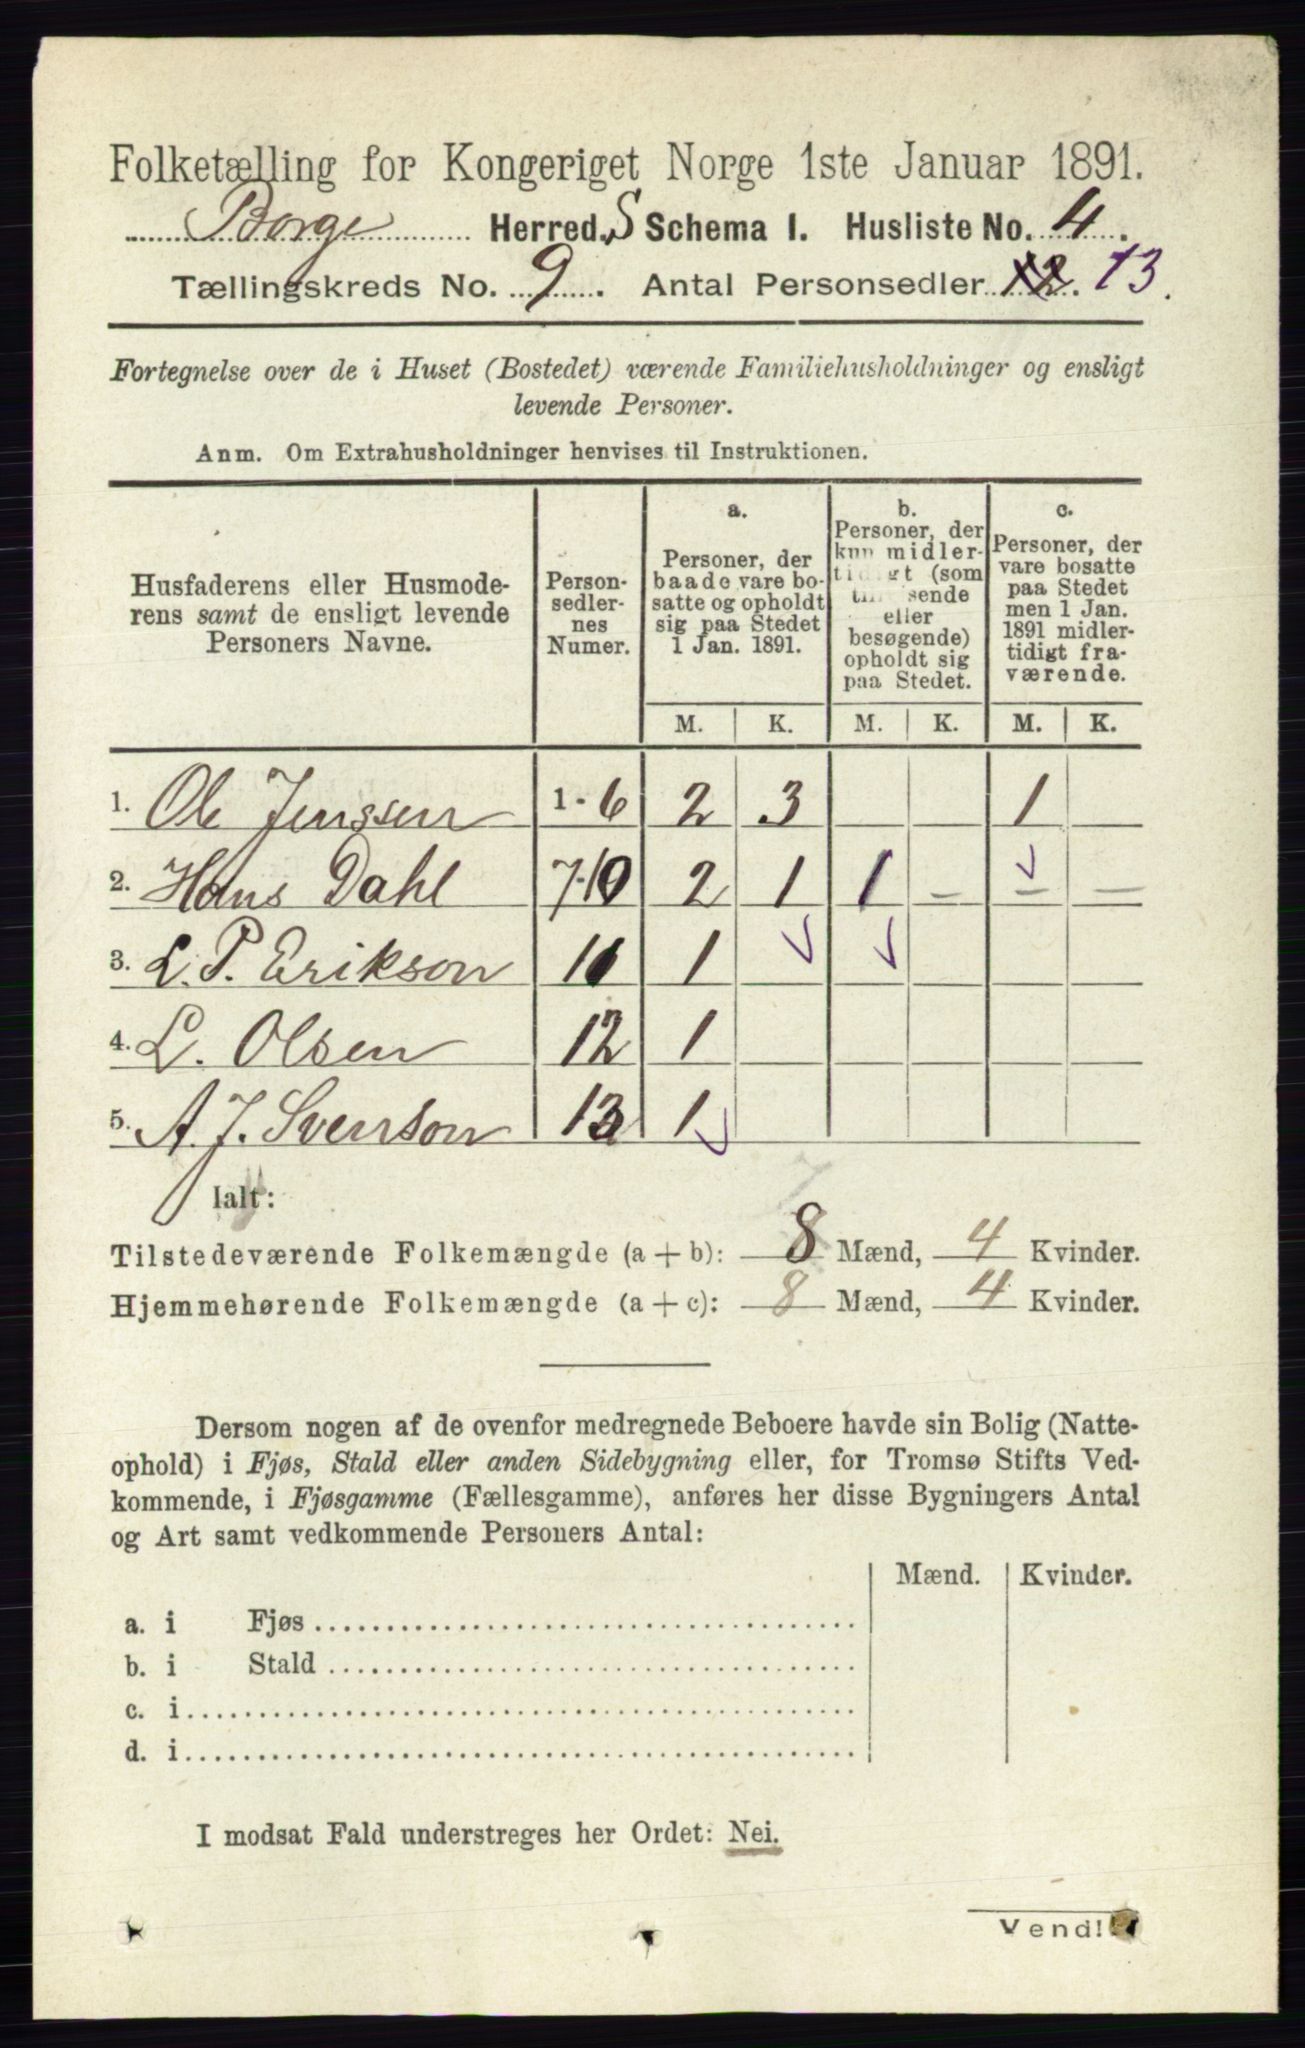 Folketælling for Kongeriget Norge 1ste Januar 1891.
Borge Herred. S Schema I. Husliste No. 4.
Tællingskreds No. 9. Antal Personsedler 12. 13.
Fortegnelse over de i Huset (Bostedet) værende Familiehusholdninger og ensligt
levende Personer.
Anm. Om Extrahusholdninger henvises til Instruktionen.
Husfaderens eller Husmode-
rens samt de ensligt levende
Personers Navne.
Person-
sedler-
nes
Numer.
a.
Personer, der
baade vare bo-
satte og opholdt
sig paa Stedet
1 Jan. 1891.
b.
Personer, der
kun midler-
tidigt (som
sende
eller
besøgende)
opholdt sig
paa Stedet.
c.
Personer, der
vare bosatte
paa Stedet
men 1 Jan.
1891 midler-
tidigt fra-
værende.
M. K. M. K. M. K.
1. Ole Jenssen 1-6 2 3 1
2. Hans Dahl 7-10 2 1 1 — — —
3. L. P. Erikson 11 1
4. L. Olsen 12 1
5. A. J. Svenson 13 1
Ialt:
Tilstedeværende Folkemængde (a + b): 8 Mænd, 4 Kvinder.
Hjemmehørende Folkemængde (a + c): 8 Mænd, 4 Kvinder.
Dersom nogen af de ovenfor medregnede Beboere havde sin Bolig (Natte-
ophold) i Fjøs, Stald eller anden Sidebygning eller, for Tromsø Stifts Ved-
kommende, i Fjøsgamme (Fællesgamme), anføres her disse Bygningers Antal
og Art samt vedkommende Personers Antal:
Mænd. Kvinder.
a. i Fjøs
b. i Stald
c. i
d. i
I modsat Fald understreges her Ordet: Nei.
Vend!